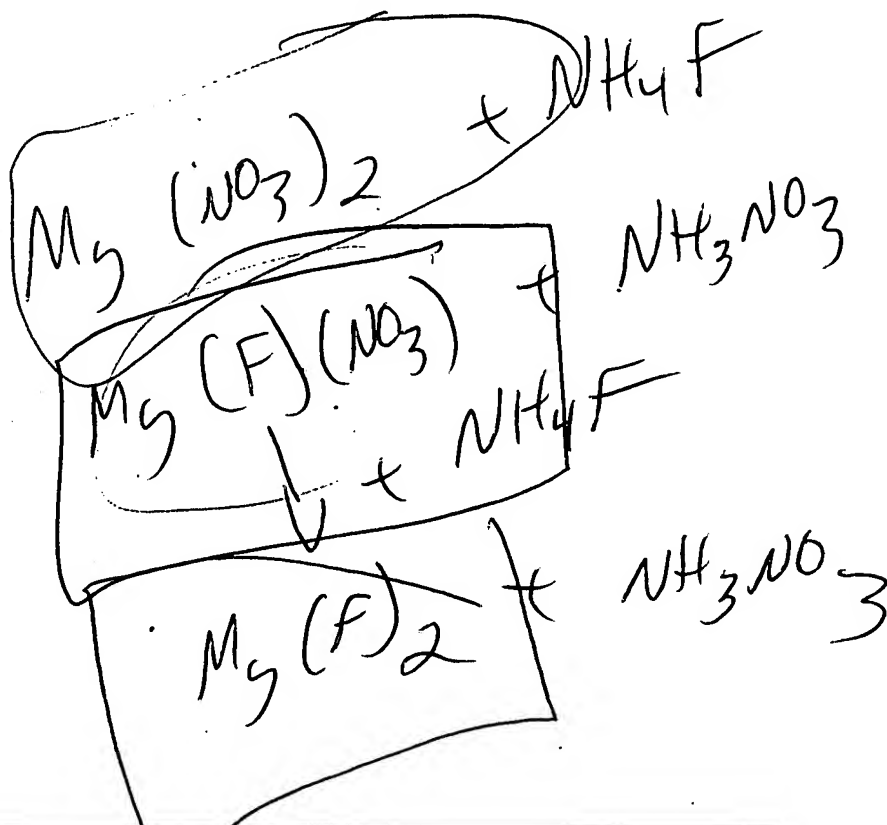 Mg (NO3)2 + NH4F
Mg (F)(NO3) + NH3NO3
+ NH4F
Mg (F)2 + NH3NO3